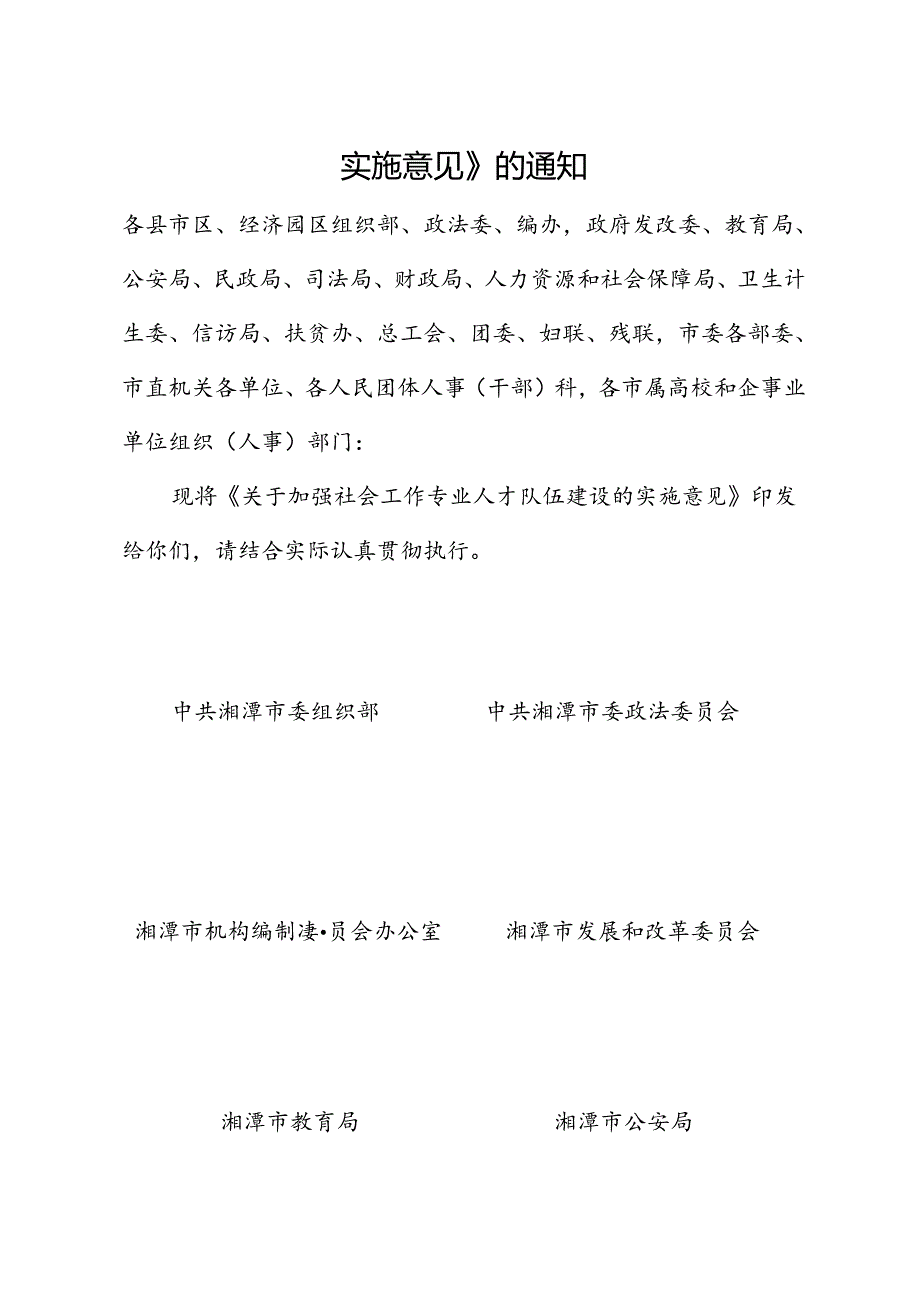 实施意见》的通知
各县市区、经济园区组织部、政法委、编办，政府发改委、教育局、
公安局、民政局、司法局、财政局、人力资源和社会保障局、卫生计
生委、信访局、扶贫办、总工会、团委、妇联、残联，市委各部委、
市直机关各单位、各人民团体人事（干部）科，各市属高校和企事业
单位组织（人事）部门：
现将《关于加强社会工作专业人才队伍建设的实施意见》印发
给你们，请结合实际认真贯彻执行。
中共湘潭市委组织部 中共湘潭市委政法委员会
湘潭市机构编制凄•员会办公室 湘潭市发展和改革委员会
湘潭市教育局 湘潭市公安局